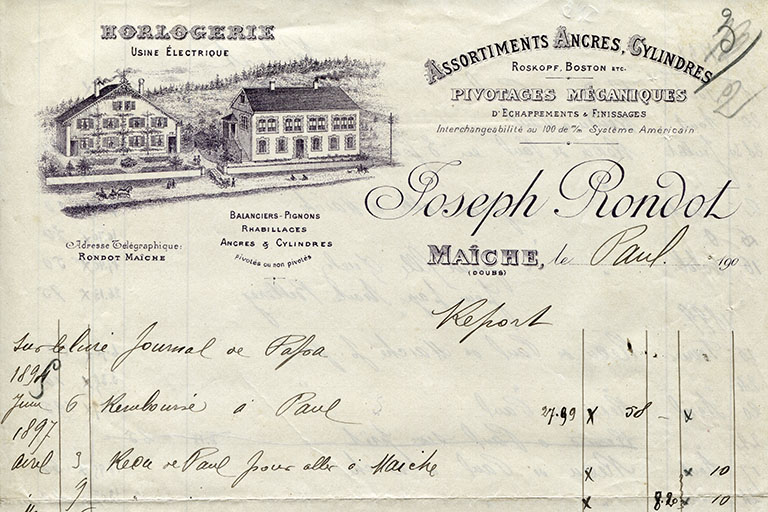 HORLOGERIE
USINE ÉLECTRIQUE
ASSORTIMENTS ANCRES, CYLINDRES
ROSKOPF, BOSTON ETC.
PIVOTAGES MÉCANIQUES
D'ECHAPPEMENTS & FINISSAGES
Interchangeabilité au 100 de m/m Système Américain
Joseph Rondot
BALANCIERS-PIGNONS
RHABILLAGES
ANCRES & CYLINDRES
pivotés ou non pivotés
Adresse Télégraphique:
RONDOT MAÎCHE
MAÎCHE, le Paul. 190
(DOUBS)
Report
Sur le livre Journal de Papa
189
Juin 6 Remboursé à Paul 27.99 x 58 - x
1897
avril 3 Recu de Paul pour aller à Maiche x x 10
9 x 8.20 x 10